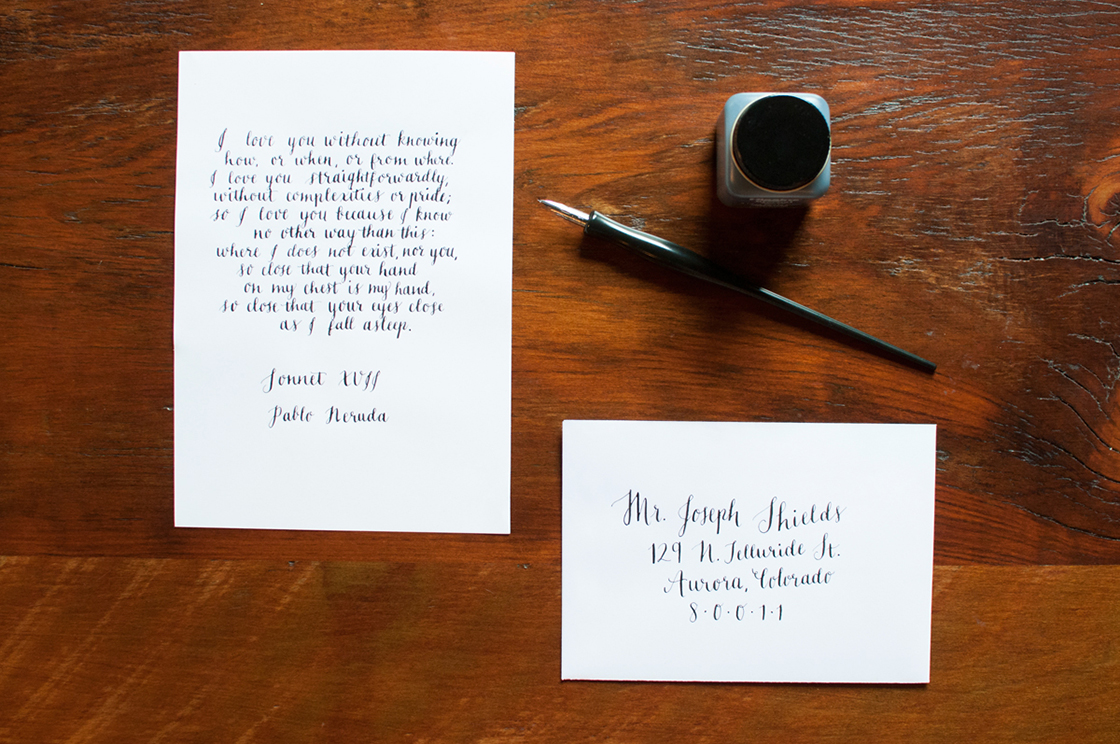 I love you without knowing
how, or when, or from where.
I love you straightforwardly,
without complexities or pride;
so I love you because I know
no other way than this:
where I does not exist, nor you,
so close that your hand
on my chest is my hand,
so close that your eyes close
as I fall asleep.
Sonnet XVII
Pablo Neruda
Mr. Joseph Shields
129 N. Telluride St.
Aurora, Colorado
8·0·0·1·1